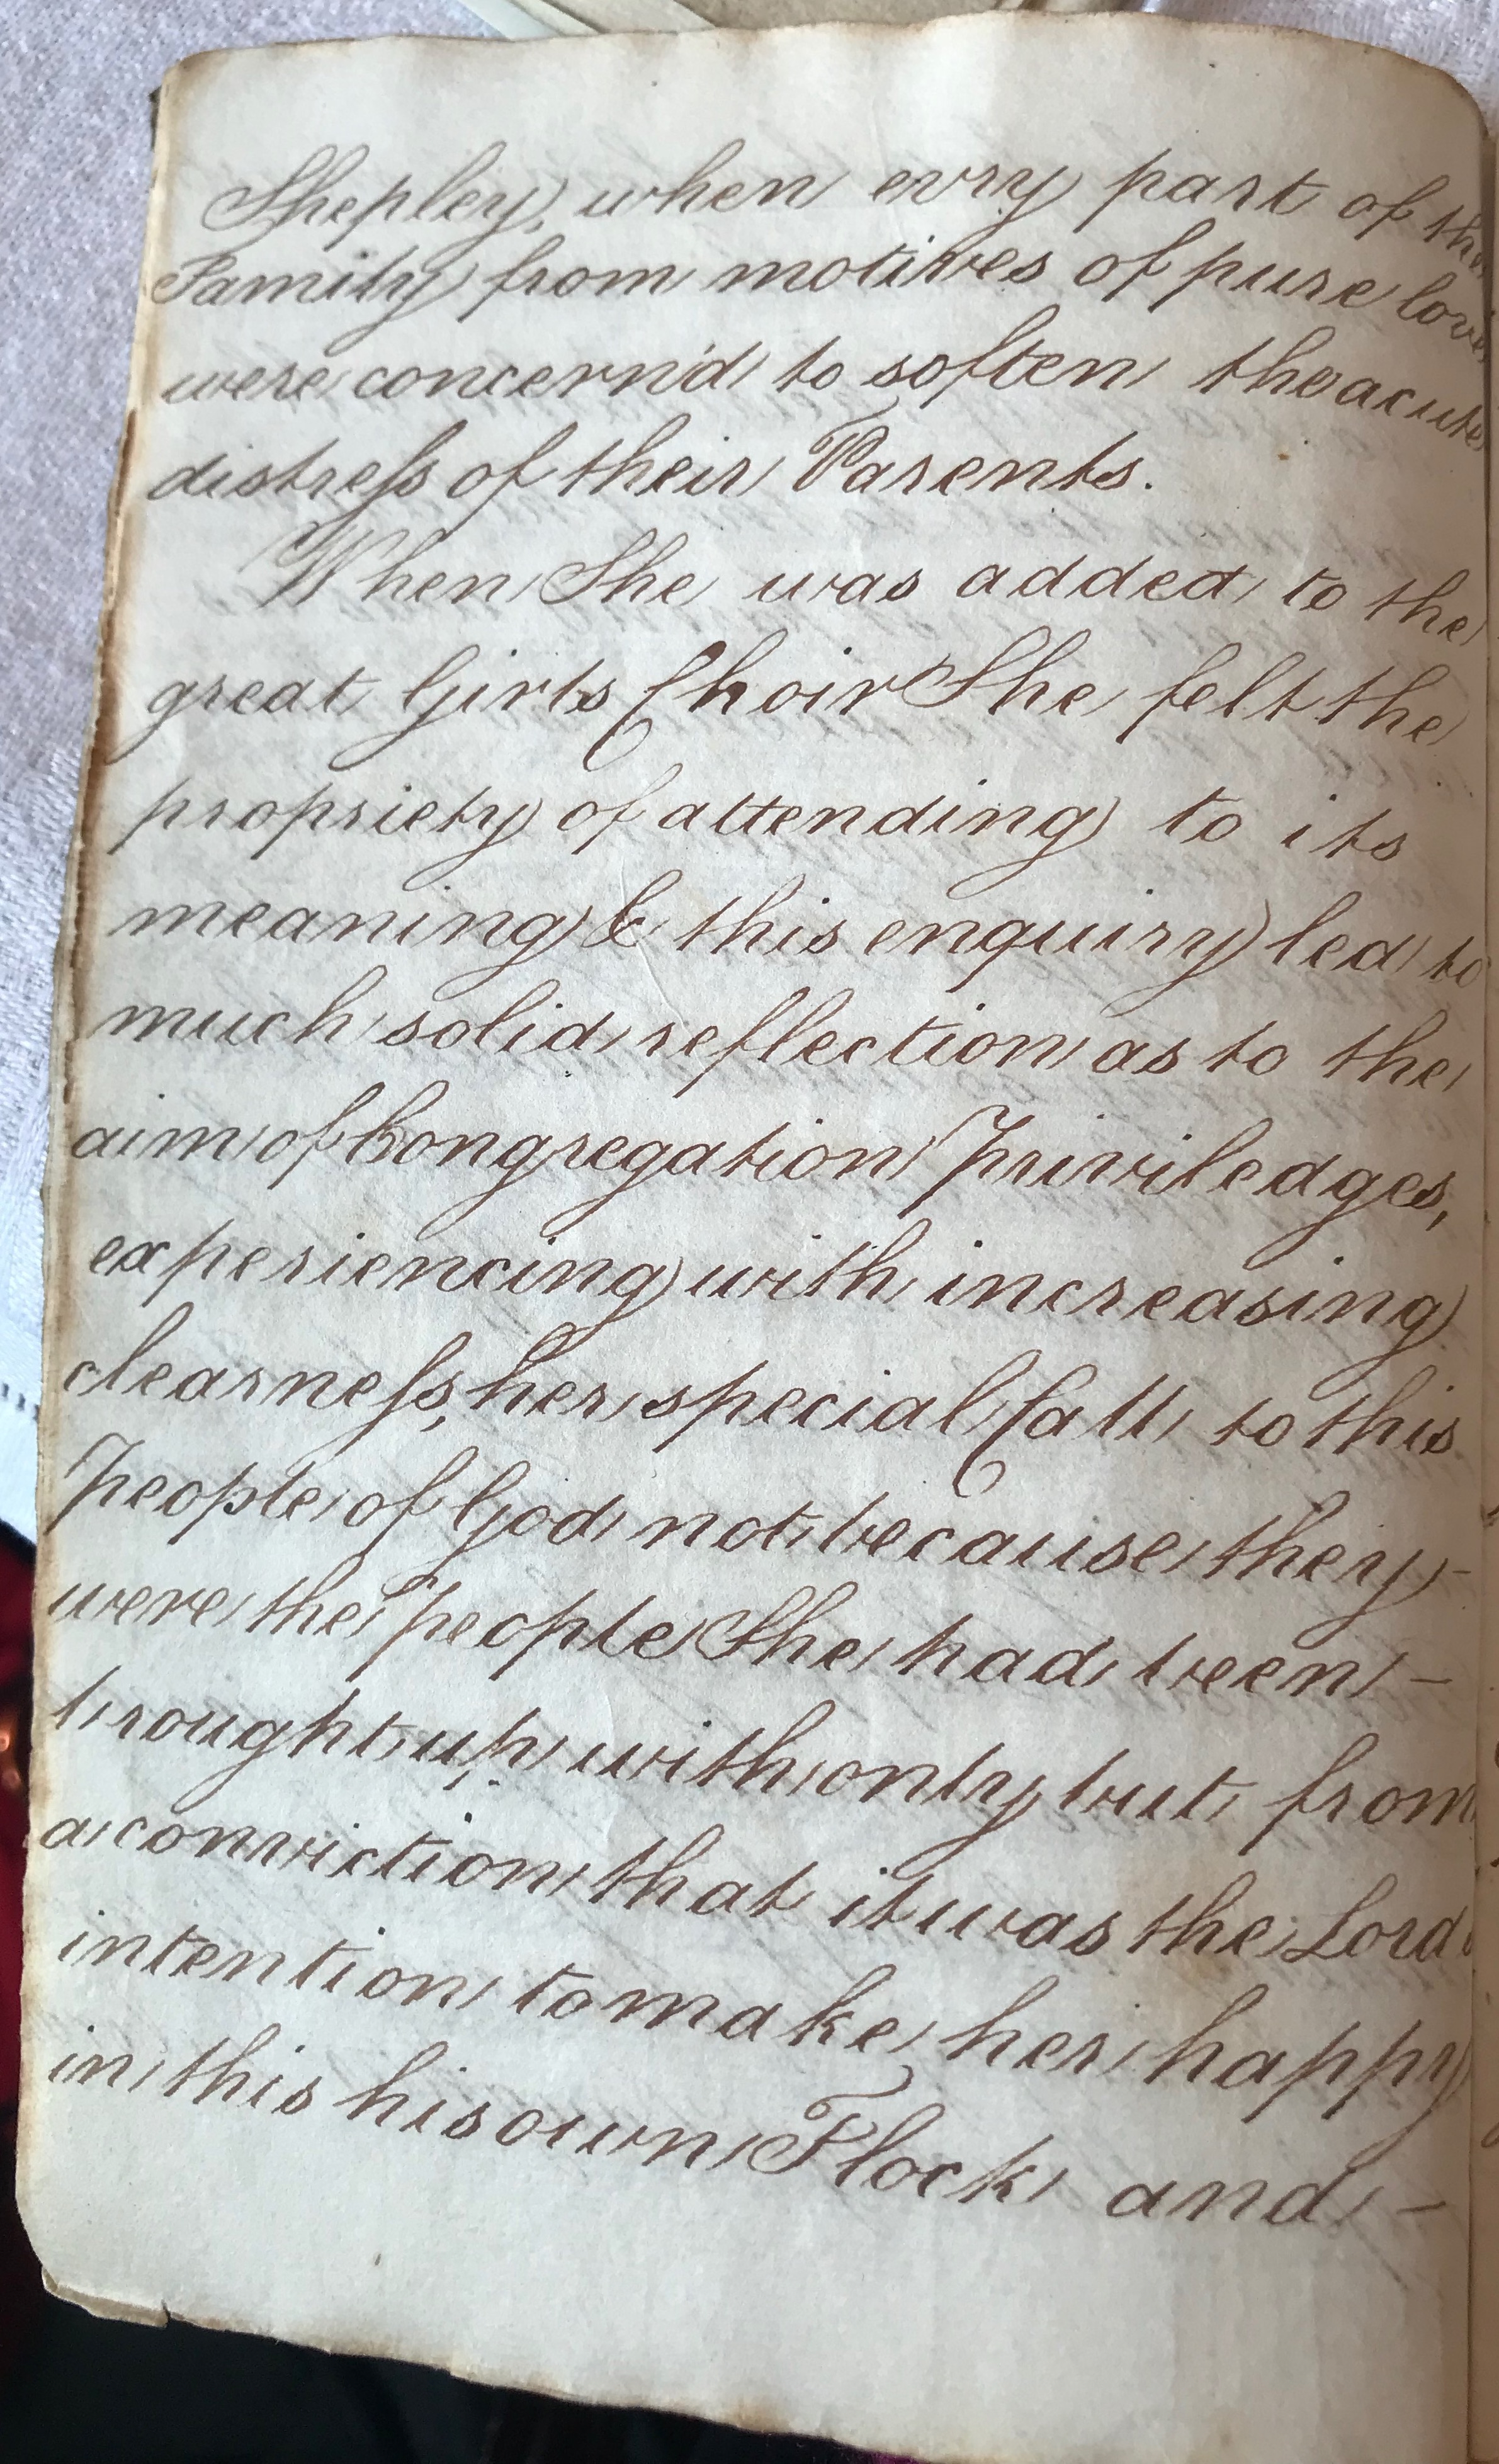 Shepley, when evry part of the
Family from motives of pure love
were concern'd to soften the acute
distress of their Parents.
When She was added to the
great Girls Choir She felt the
propriety of attending to its
meaning & this enquiry led to
much solid reflection as to the
aim of Congregation Priviledges,
experiencing with increasing
clearness, her special Call to this
People of God not because they -
were the People She had been -
brought up with only but from
a conviction that it was the Lords
intention to make her happy
in this his own Flock and -